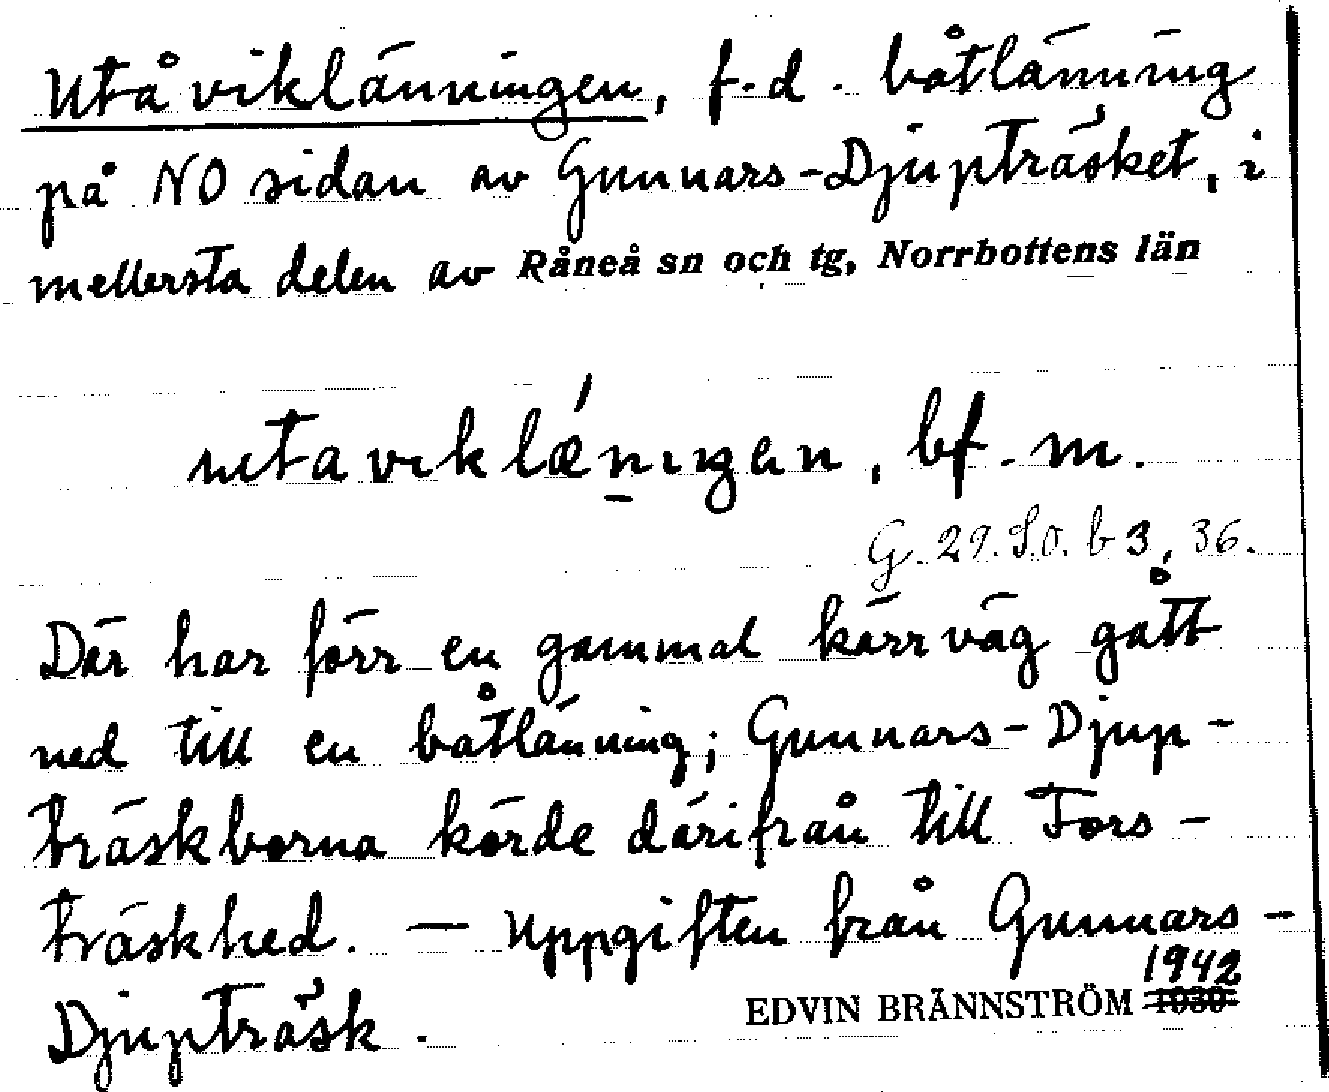 Utåviklänningen, f.d. båtlänning
på NO sidan av Gunnars-Djupträsket, i
mellersta delen av Råneå sn och tg, Norrbottens län
utaviklǽn̲ıŋan, bf. m.
G. 29. S.O. b 3, 36.
Där har förr en gammal kärrväg gått
ned till en båtlänning; Gunnars-Djup-
träskborna körde därifrån till Fors-
träskhed. — Uppgiften från Gunnars-
Djupträsk.
EDVIN BRÄNNSTRÖM 1942